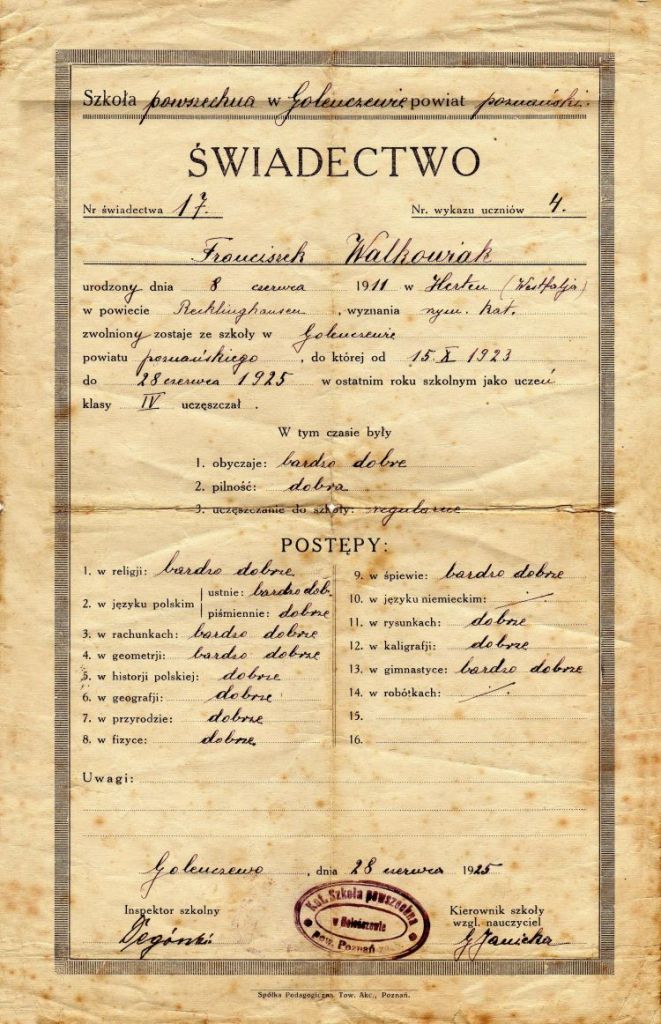 Szkoła powszechna w Golenczewie powiat poznański.
ŚWIADECTWO
Nr świadectwa 17. Nr. wykazu uczniów 4.
Franciszek Walkowiak
urodzony dnia 8 czerwca 1911 w Herten (Westfalja)
w powiecie Recklinghausen, wyznania rzym. kat.
zwolniony zostaje ze szkoły w Golenczewie
powiatu poznańskiego, do której od 15 X 1923
do 28 czerwca 1925 w ostatnim roku szkolnym jako uczeń
klasy IV uczęszczał.
W tym czasie były
1. obyczaje: bardzo dobre
2. pilność: dobra
3. uczęszczanie do szkoły: regularne
POSTĘPY:
1. w religji: bardzo dobrze
2. w języku polskim ustnie: bardzo dob.
piśmiennie: dobrze
3. w rachunkach: bardzo dobrze
4. w geometrji: bardzo dobrze
5. w historji polskiej: dobrze
6. w geografji: dobrze
7. w przyrodzie: dobrze
8. w fizyce: dobrze
9. w śpiewie: bardzo dobrze
10. w języku niemieckim: ./.
11. w rysunkach: dobrze
12. w kaligrafji: dobrze
13. w gimnastyce: bardzo dobrze
14. w robótkach: ./.
15.
16.
Uwagi:
Golenczewo, dnia 28 czerwca 1925
Inspektor szkolny
Kierownik szkoły
wzgl. nauczyciel
Kat. Szkoła powszechna
w Golenczewie
pow. Poznań
G Janicka
Spółka Pedagogiczna. Tow. Akc., Poznań.